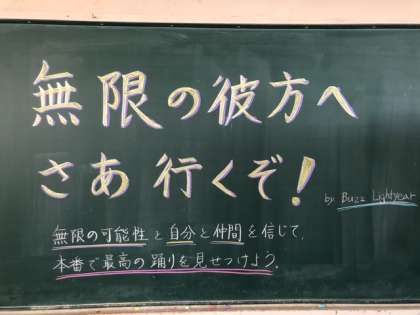 無限の彼方へ
さあ行くぞ!
by Buzz Lightyear
無限の可能性と自分と仲間を信じて、
本番で最高の踊りを見せつけよう。